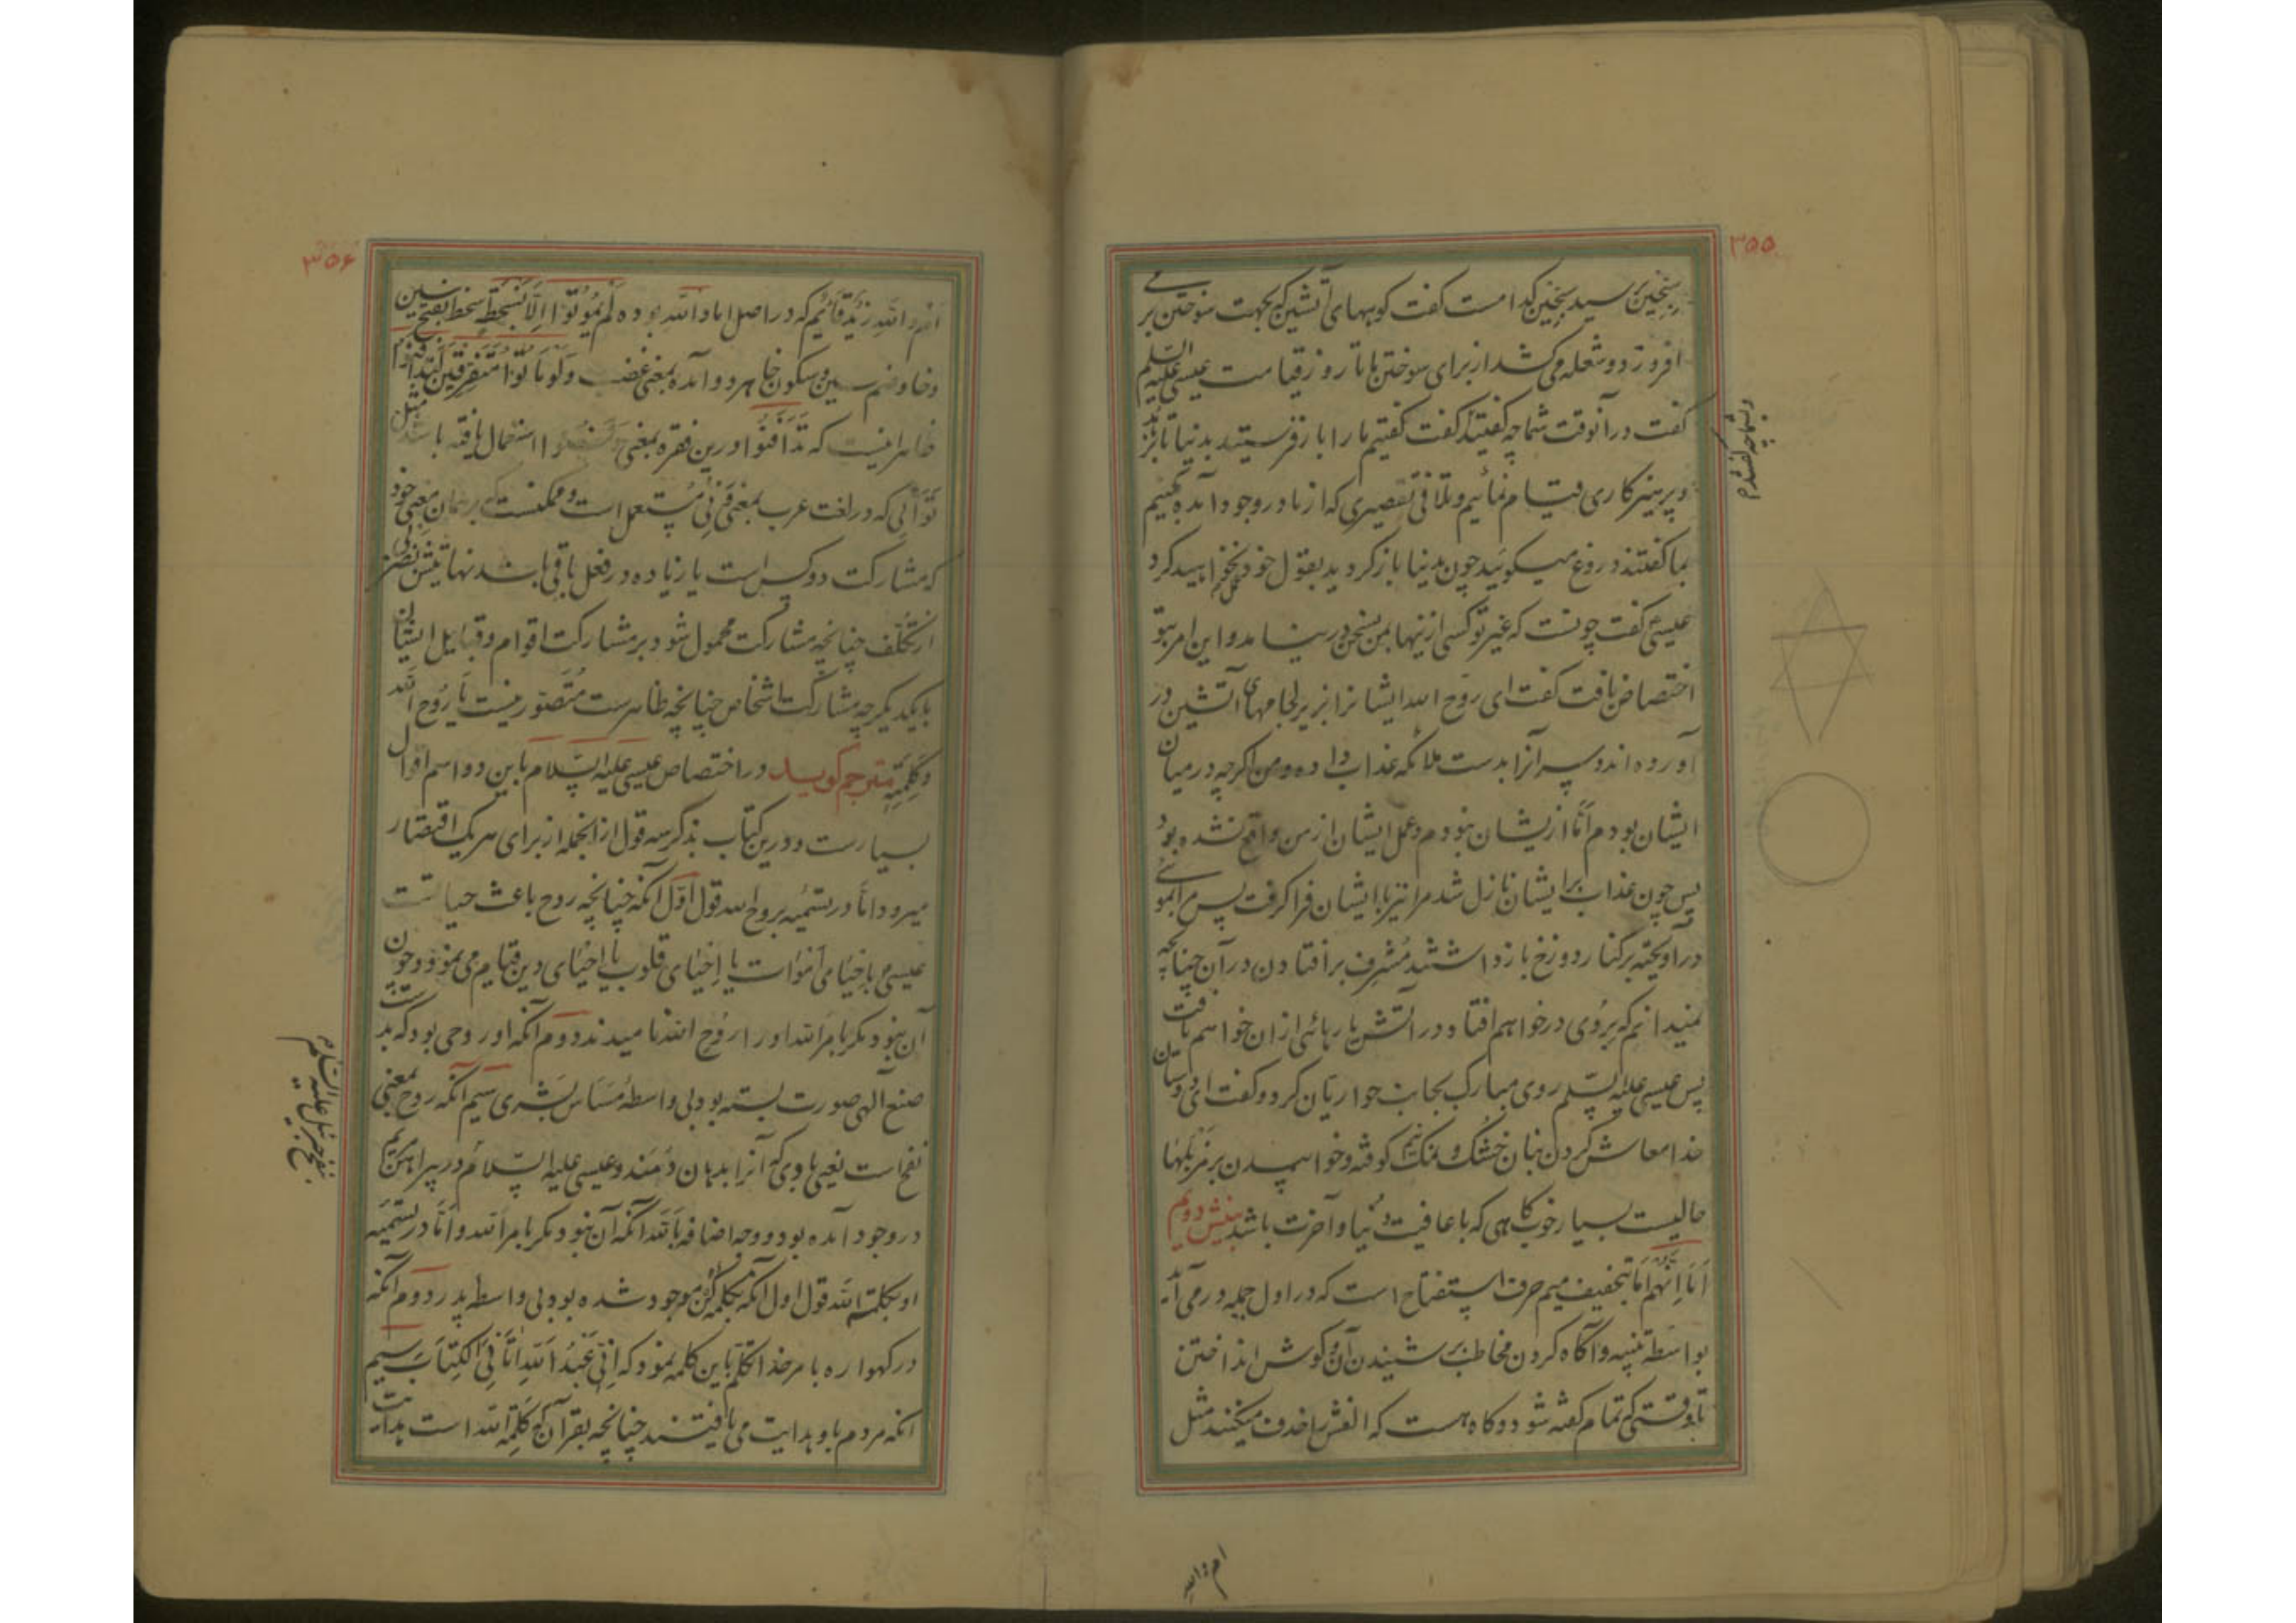 ۳۵۵
سجین پرسید سجین کدامست گفت کوههای آتشین که بجهت سوختن بر می
افروزد و شعله می کشد از برای سوختن ما تا روز قیامت عیسی علیه السلم
گفت در آنوقت شما چه گفتید گفت گفتیم ما را باز فرستید بدنیا تا بزهد
و پرهیزکاری قیام نمائیم و تلافی تقصیری که از ما در وجود آمده کنیم
بما گفتند دروغ میگوئید چون بدنیا باز گردید بقول خود عمل نخواهید کرد
عیسی گفت چونست که غیر تو کسی ازینها بمن بسخن در نیامد و این امر بتو
اختصاص یافت گفت ای روح الله ایشانرا بزیر لجامهای آتشین در
آورده اند و سر آنرا بدست ملائکه عذاب داده و من اگرچه در میان
ایشان بودم اما از یشان نبودم و عمل ایشان از من واقع نشده بود
پس چون عذاب بر ایشان نازل شد مرا نیز با ایشان فرا گرفت پس مرا بموئی
در آویخته بر کنار دوزخ باز داشتند مشرف بر افتادن در آن چنانچه
نمیدانم که بروی در خواهم افتاد در آتش یا رهائی از ان خواهم یافت
پس عیسی علیه السلم روی مبارک بجانب حواریان کرد و گفت ای دوستان
خدا معاش کردن بنان خشک و نمک نیم کوفته و خوابیدن بر مزبلها
حالیست بسیار خوب گاهی که با عافیت دنیا و آخرت باشد بینش دویم
اما انهم اما بتخفیف میم حرف استفتاح است که در اول جمله در می آید
بواسطه تنبیه و آگاه کردن مخاطب بر شنیدن آن و گوش انداختن
تا وقتی که تمام گفته شود و گاه هست که الفش را حذف میکنند مثل
ام والله
۳۵۶
ام والله زید قائم که در اصل اما والله بوده لم یموتوا الا بسخط سخط بفتح سین
و خا و ضم سین و سکون خا هر دو آمده بمعنی غضب و لو ماتوا متفرقین لتدافنوا
ظاهر اینست که تدافنوا درین فقره بمعنی استعمال یافته باشد مثل
توانی که در لغت عرب بمعنی ونی مستعمل است و ممکنست که بر همان معنی خود
که مشارکت دو کس است یا زیاده در فعل باقی باشد نهایتش نظر بی
از تکلف چنانچه مشارکت محمول شود بر مشارکت اقوام و قبایل ایشان
با یکدیگر چه مشارکت اشخاص چنانچه ظاهرست متصور نیست یا روح الله
و کلمته مترجم گوید در اختصاص عیسی علیه السلام باین دو اسم اقوال
بسیارست و درین کتاب بذکر سه قول از انجمله از برای هر یک اقتصار
میرود اما در تسمیه بروح الله قول اول آنکه چنانچه روح باعث حیاتست
عیسی م باحیای اموات یا احیای قلوب یا احیای دین قیام می نمود و چون
آن نبود مگر بامر الله او را روح الله نامیدند دوم آنکه او روحی بود که بدست
صنع الهی صورت بسته بود بی واسطه مساس بشری سیم آنکه روح بمعنی
نفخ است یعنی بادی که آنرا بدهان دمند و عیسی علیه السلام در پیراهن مریم
در وجود آمده بود و وجه اضافه بالله آنکه آن نبود مگر بامر الله و اما در تسمیه
او بکلمة الله قول اول آنکه بکلمه کن موجود شده بود بی واسطه پدر دوم آنکه
در گهواره بامر خدا تکلم باین کلمه نمود که انی عبد الله اتانی الکتاب سیم
آنکه مردم باو هدایت می یافتند چنانچه بقرآن که کلمة الله است هدایت
بنفخ جبرئیل علیه السلم